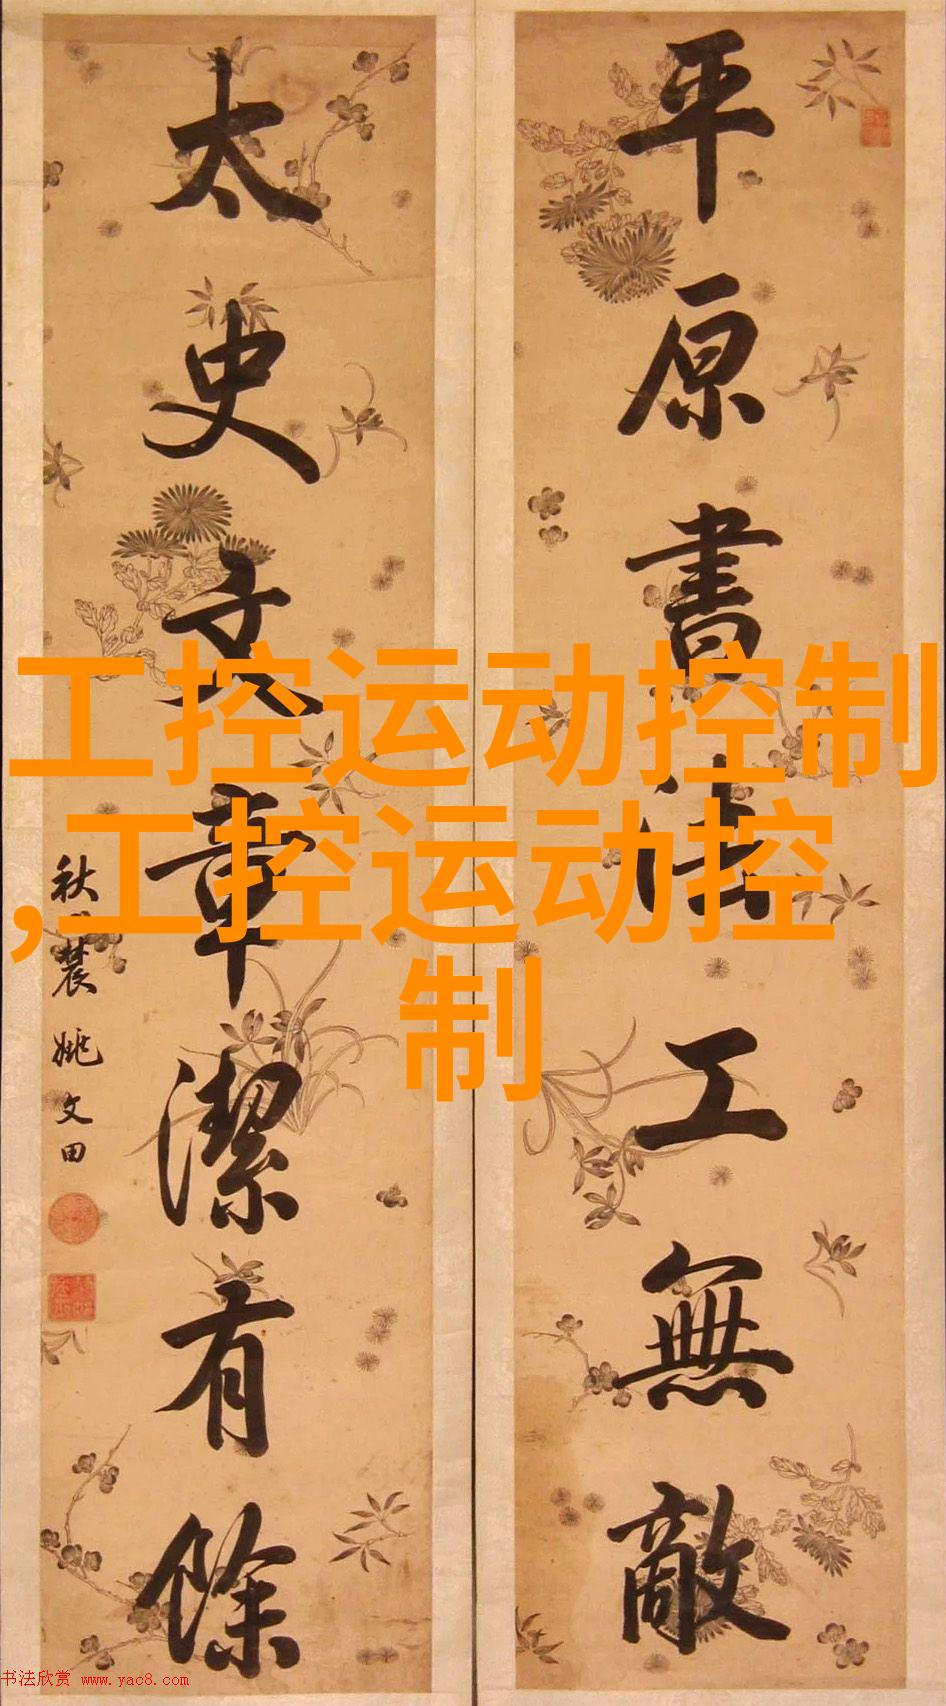 平原書法工無敵
太史文章潔有餘
秋農姚文田
工控运动控制
,工控运动控
制
书法欣赏 www.yac8.com